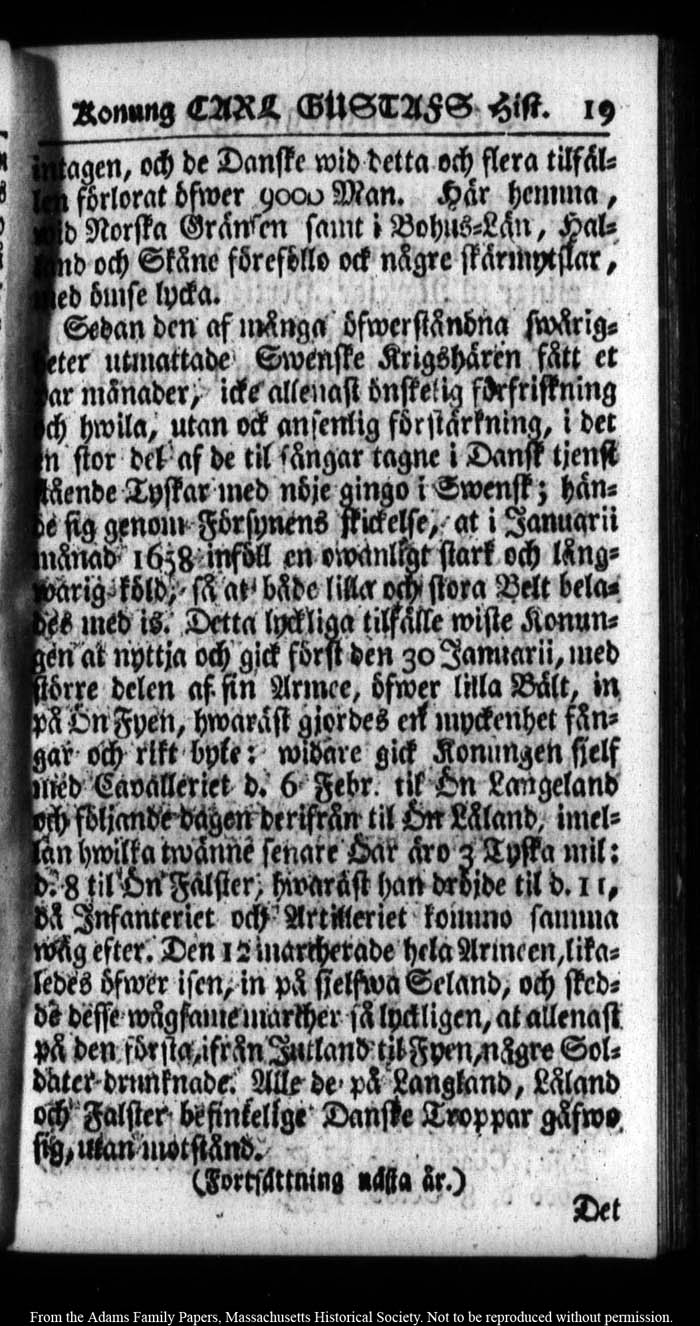 Konung CARL GUSTAFS Hist. 19
intagen, och de Danske wid detta och flera tilfäl-
len förlorat öfwer 9000 Man. Här hemma,
wid Norska Gränsen samt i Bohus-Län, Hal-
land och Skåne föreföllo ock någre skärmytslar,
med ömse lycka.
Sedan den af många öfwerståndna swårig-
heter utmattade Swenske Krigshären fått et
par månader, icke allenast önskelig förfriskning
och hwila, utan ock ansenlig förstärkning, i det
en stor del af de til fångar tagne i Dansk tjenst
stående Tyskar med nöje gingo i Swensk; hän-
de sig genom Försynens skickelse, at i Januarii
månad 1658 inföll en owanligt stark och lång-
warig köld, så at både lilla och stora Belt bela-
des med is. Detta lyckliga tilfälle wiste Konun-
gen at nyttja och gick först den 30 Januarii, med
större delen af sin Armee, öfwer lilla Bält, in
på Ön Fyen, hwaräst gjordes en myckenhet fån-
gar och rikt byte: widare gick Konungen sjelf
med Cavalleriet d. 6 Febr. til Ön Langeland
och följande dagen derifrån til Ön Låland, imel-
lan hwilka twänne senare Öar äro 3 Tyska mil:
d. 8 til Ön Falster, hwaräst han dröjde til d. 11,
då Infanteriet och Artilleriet kommo samma
wäg efter. Den 12 marcherade hela Armeen, lika-
ledes öfwer isen, in på sjelfwa Seland, och sked-
de desse wågsame marcher så lyckligen, at allenast
på den första, ifrån Jutland til Fyen, någre Sol-
dater drunknade. Alle de på Langland, Låland
och Falster befintelige Danske Troppar gåfwo
sig, utan motstånd.
(Fortsättning nästa år.)
Det
From the Adams Family Papers, Massachusetts Historical Society. Not to be reproduced without permission.